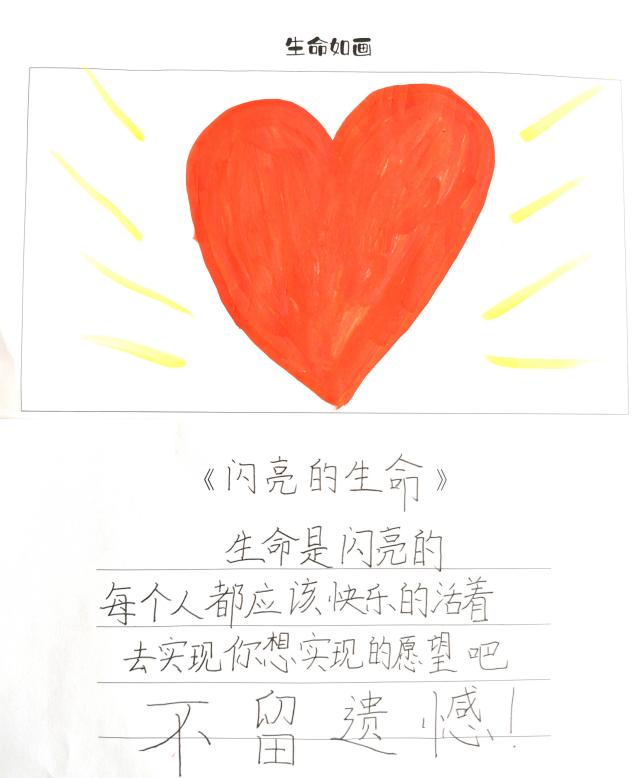 生命如画
《闪亮的生命》
生命是闪亮的
每个人都应该快乐的活着
去实现你想实现的愿望吧
不留遗憾!